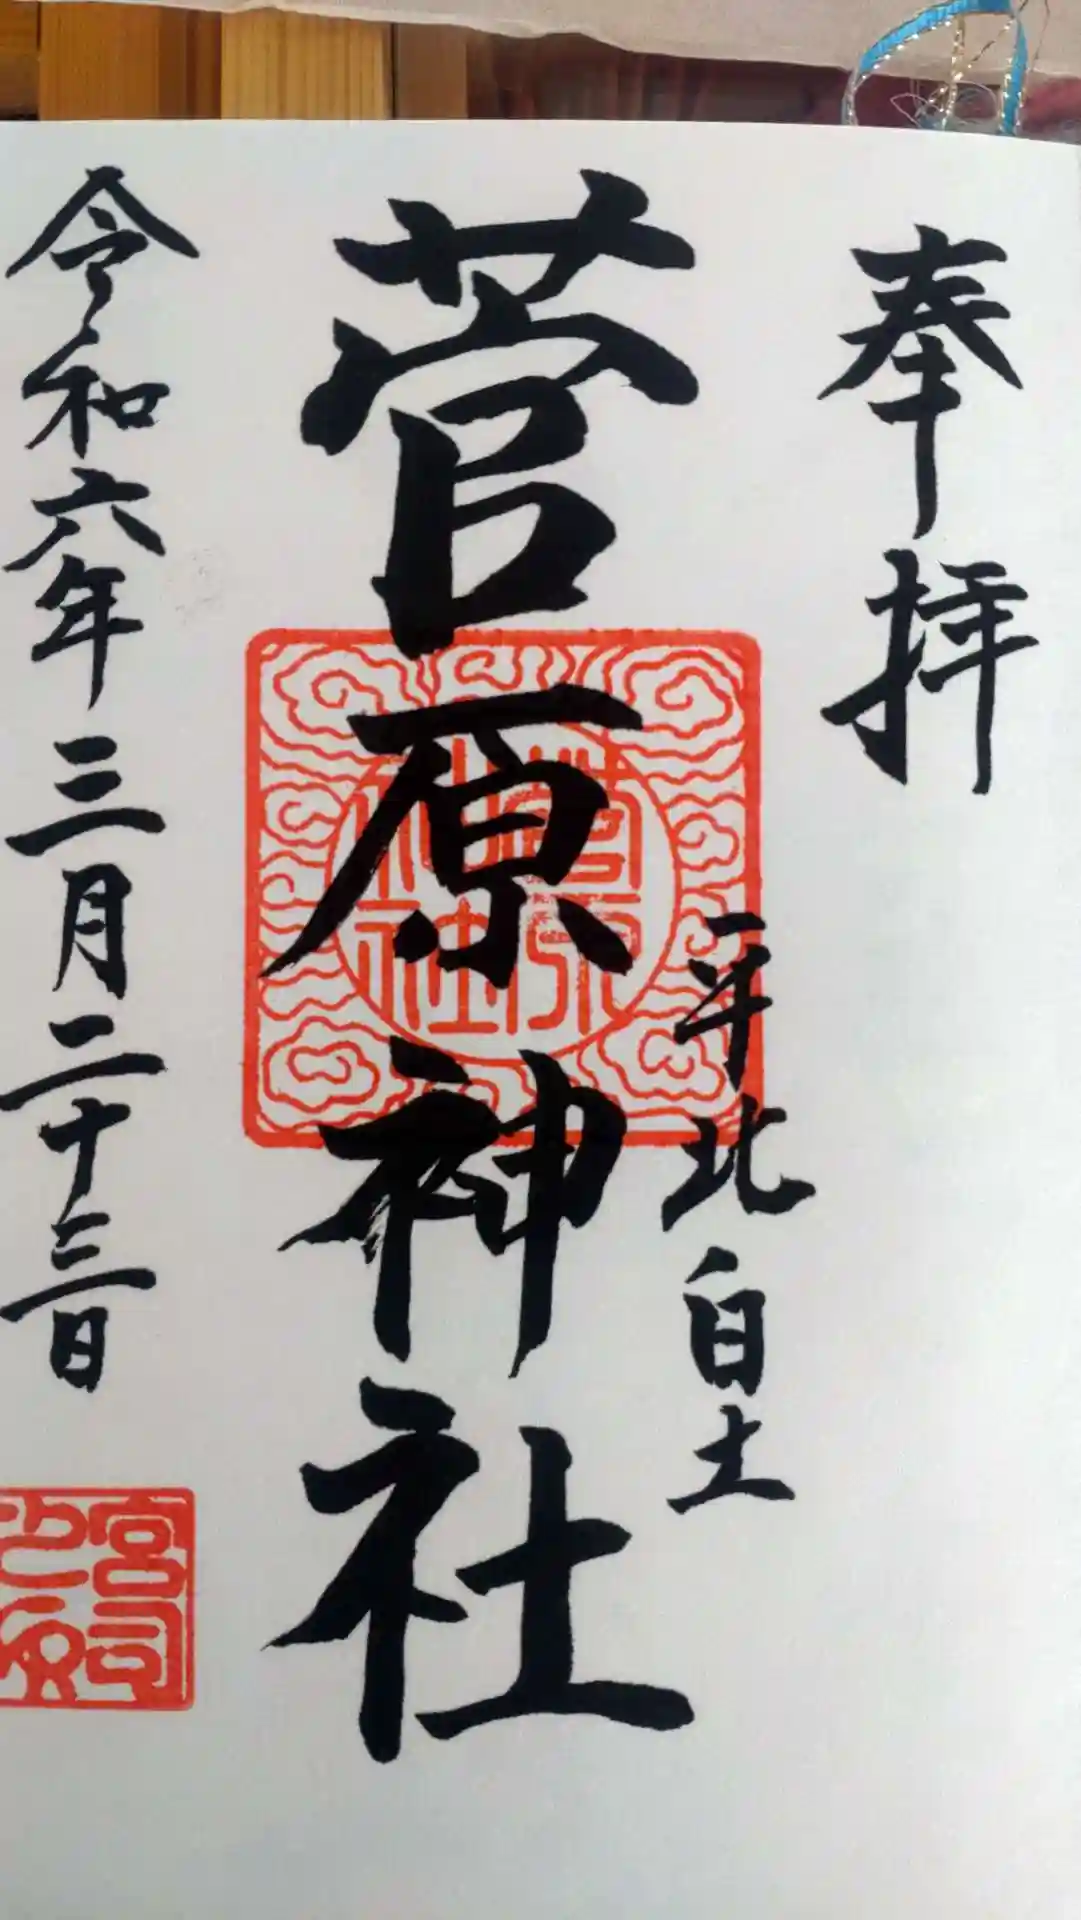 奉拝
平北白土
菅原神社
菅原神社
令和六年三月二十三日
宮司之印